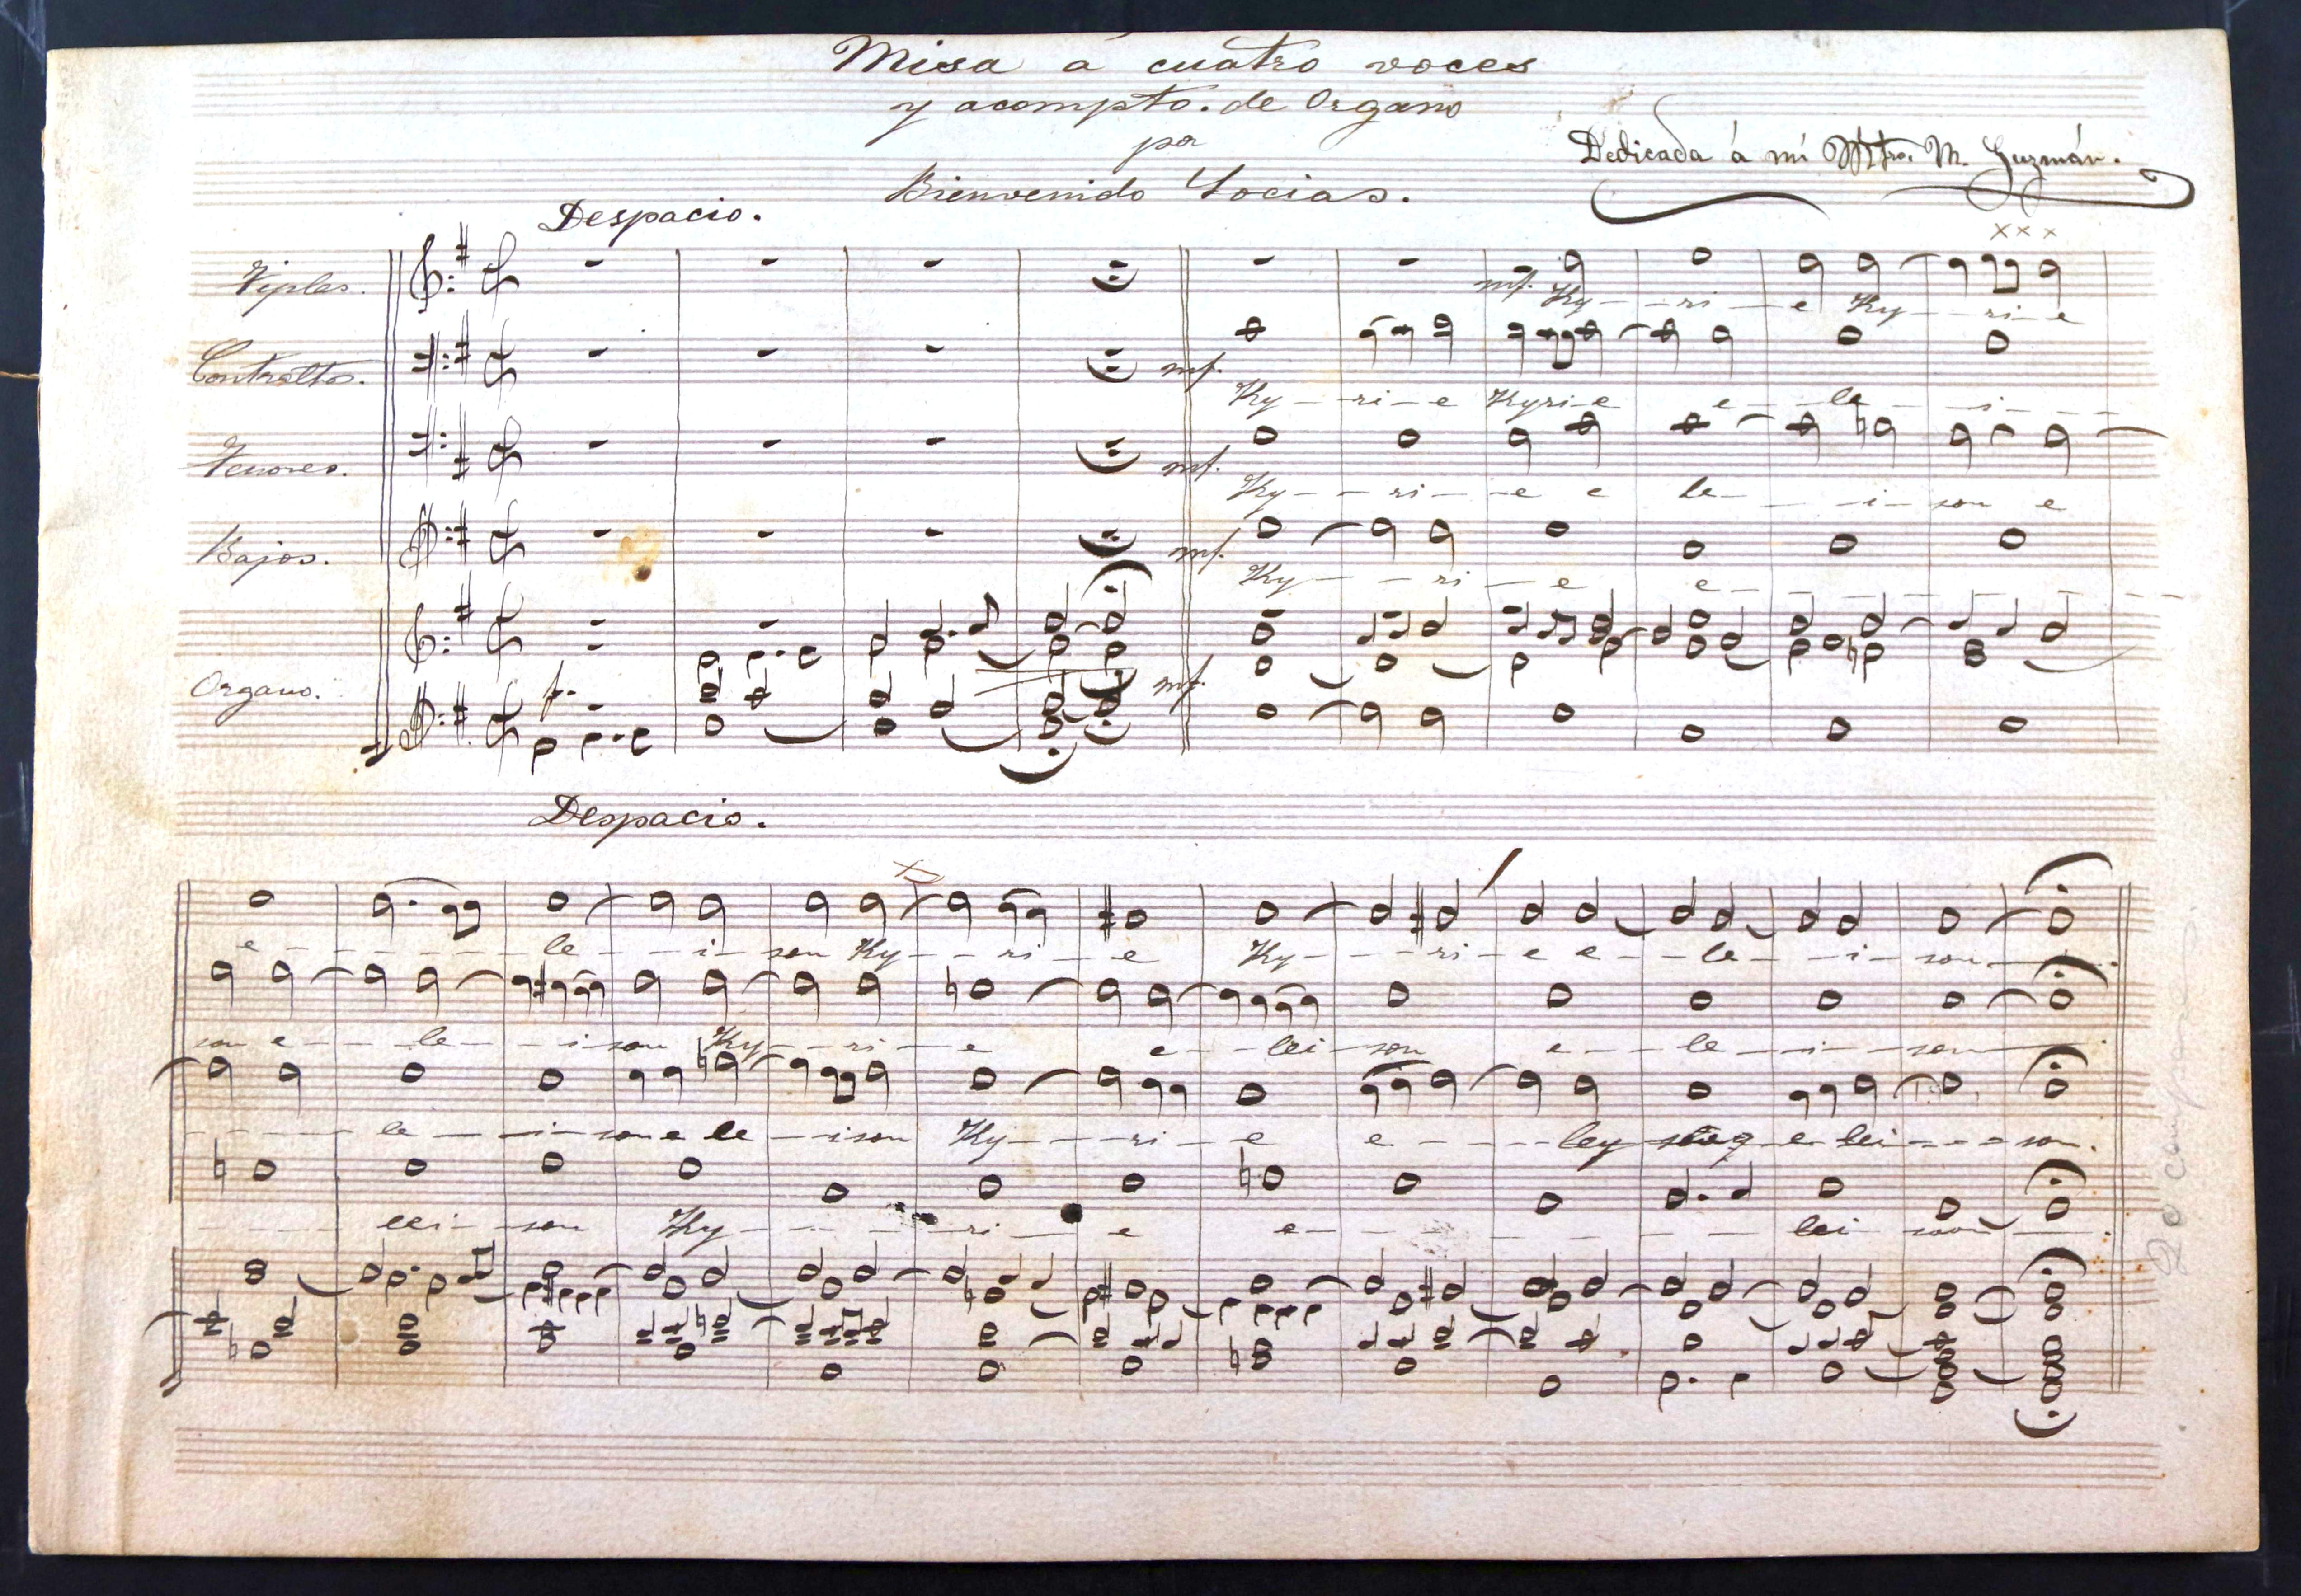 Misa á cuatro voces
y acompto. de Organo
por
Bienvenido Socias.
Dedicada á mi Mtro. M. Guzmán.
Despacio.
x x x
Tiples.
mf. Ky - - ri - e Ky - - ri - e
Contraltos.
mf.
Ky - - ri - e Kyri - e e - - le - - i - - - -
Tenores.
mf.
Ky - - ri - - e e le - - - i - son e
Bajos.
mf.
Ky - - - ri - e e - - - - - - -
Organo.
f.
mf.
Despacio.
e - - - - - - le - - i - son Ky - - ri - e Ky - - - ri - e e - - le - - i - son
son e - - - le - - - i son Ky - - ri - e e - - lei - son e - - - le - - i - - son
- - - - - le - - i - son e le - ison Ky - - - ri - e e - - - - ley e - lei - - - son.
- - - - lei - son Ky - - - - - ri - e e - - - - - - - - lei son